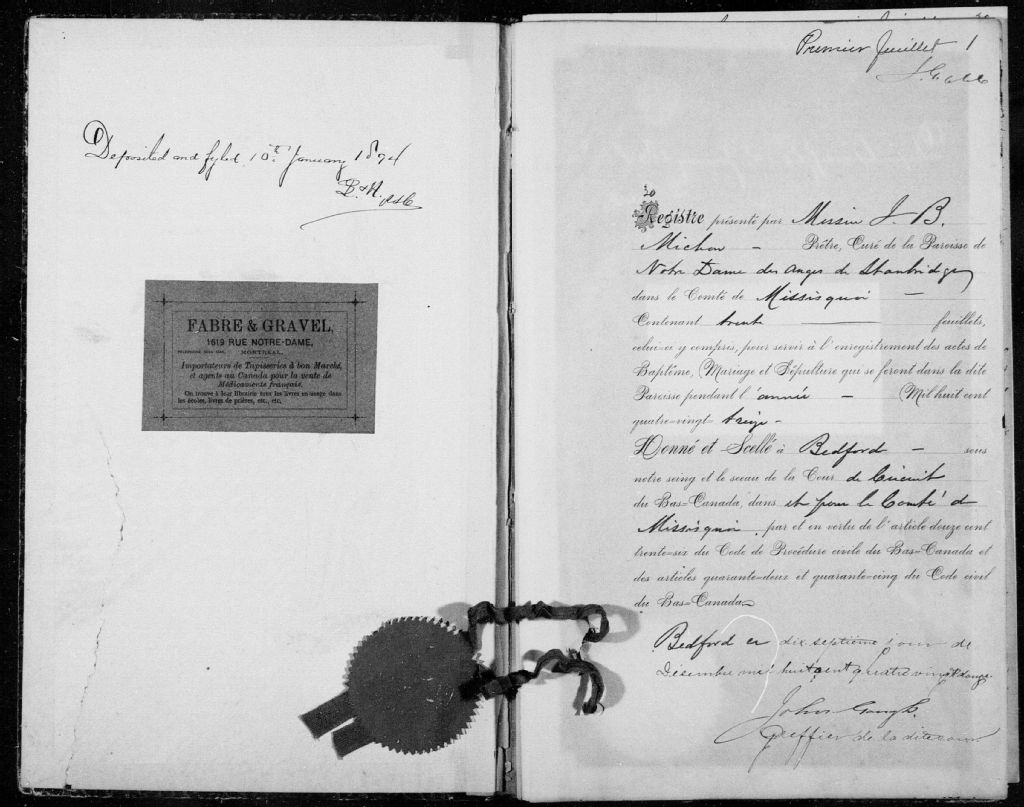 Deposited and fyled 10th January 1894
FABRE & GRAVEL,
1619 RUE NOTRE-DAME,
MONTREAL.
Importateurs de Tapisseries à bon Marché,
et agents au Canada pour la vente de
Médicaments français.
On trouve à leur librairie tous les livres en usage dans
les écoles, livres de prières, etc., etc.
Premier feuillet 1
30
Registre présenté par Messire J. B.
Michon - Prêtre, Curé de la Paroisse de
Notre Dame des Anges de Stanbridge
dans le Comté de Missisquoi -
Contenant trente feuillets,
celui-ci y compris, pour servir à l'enregistrement des actes de
Baptême, Mariage et Sépulture qui se feront dans la dite
Paroisse pendant l'année - Mil huit cent
quatre-vingt treize -
Donné et Scellé à Bedford - sous
notre seing et le sceau de la Cour de Circuit
du Bas-Canada, dans et pour le Comté de
Missisquoi, par et en vertu de l'article douze cent
trente-six du Code de Procédure civile du Bas-Canada et
des articles quarante-deux et quarante-cinq du Code civil
du Bas-Canada
Bedford ce dix septième jour de
Décembre mil huit cent quatre vingt douze.
John Gough.
Greffier de la dite cour